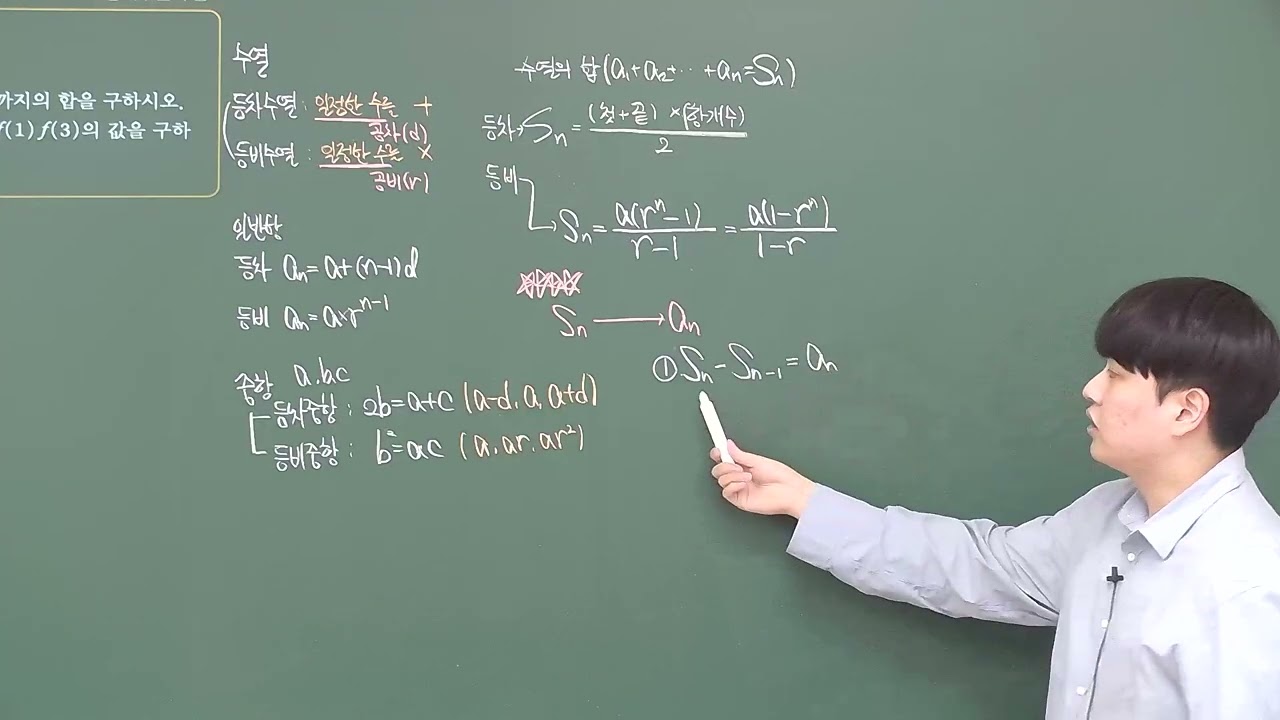 까지의 합을 구하시오.
f(1) f(3)의 값을 구하
수열
등차수열 : 일정한 수를 +
공차(d)
등비수열 : 일정한 수를 ×
공비(r)
일반항
등차 aₙ=a+(n-1)d
등비 aₙ=a×rⁿ⁻¹
중항 a.b.c
등차중항 : 2b=a+c (a-d, a, a+d)
등비중항 : b²=ac (a, ar, ar²)
수열의 합(a₁+a₂+⋯+aₙ=Sₙ)
등차→Sₙ=(첫+끝)×(항개수)/2
등비
→Sₙ=a(rⁿ-1)/r-1=a(1-rⁿ)/1-r
Sₙ→aₙ
①Sₙ-Sₙ₋₁=aₙ